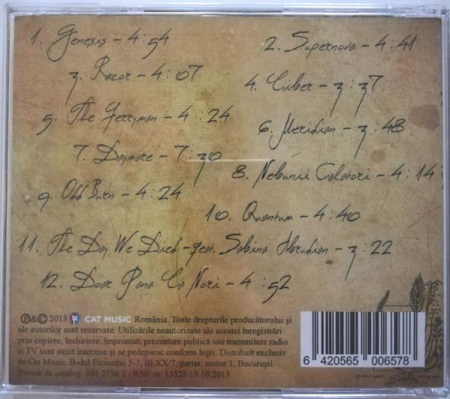 1. Genesis - 4:54
2. Supernova - 4:41
3. Razor - 4:07
4. Ciber - 3:37
5. The Ferryman - 4:24
6. Meridian - 3:48
7. Daymare - 7:30
8. Nebunii Calatori - 4:14
9. Odd Burn - 4:24
10. Quantum - 4:40
11. The Day We Died - feat. Sabina - 3:22
12. Doar Pana La Nori - 4:52
℗&© 2013 CAT MUSIC România. Toate drepturile producătorului și
ale autorilor sunt rezervate. Utilizările neautorizate ale acestei înregistrări
prin copiere, închiriere, împrumut, prezentare publică sau transmitere radio
si TV sunt strict interzise și se pedepsesc conform legii. Distribuit exclusiv
de Cat Music, 5-7, parter, sector 1, București.
de catalog: 101 2796 2 / 13523/18.10.2013
6 420565 006578